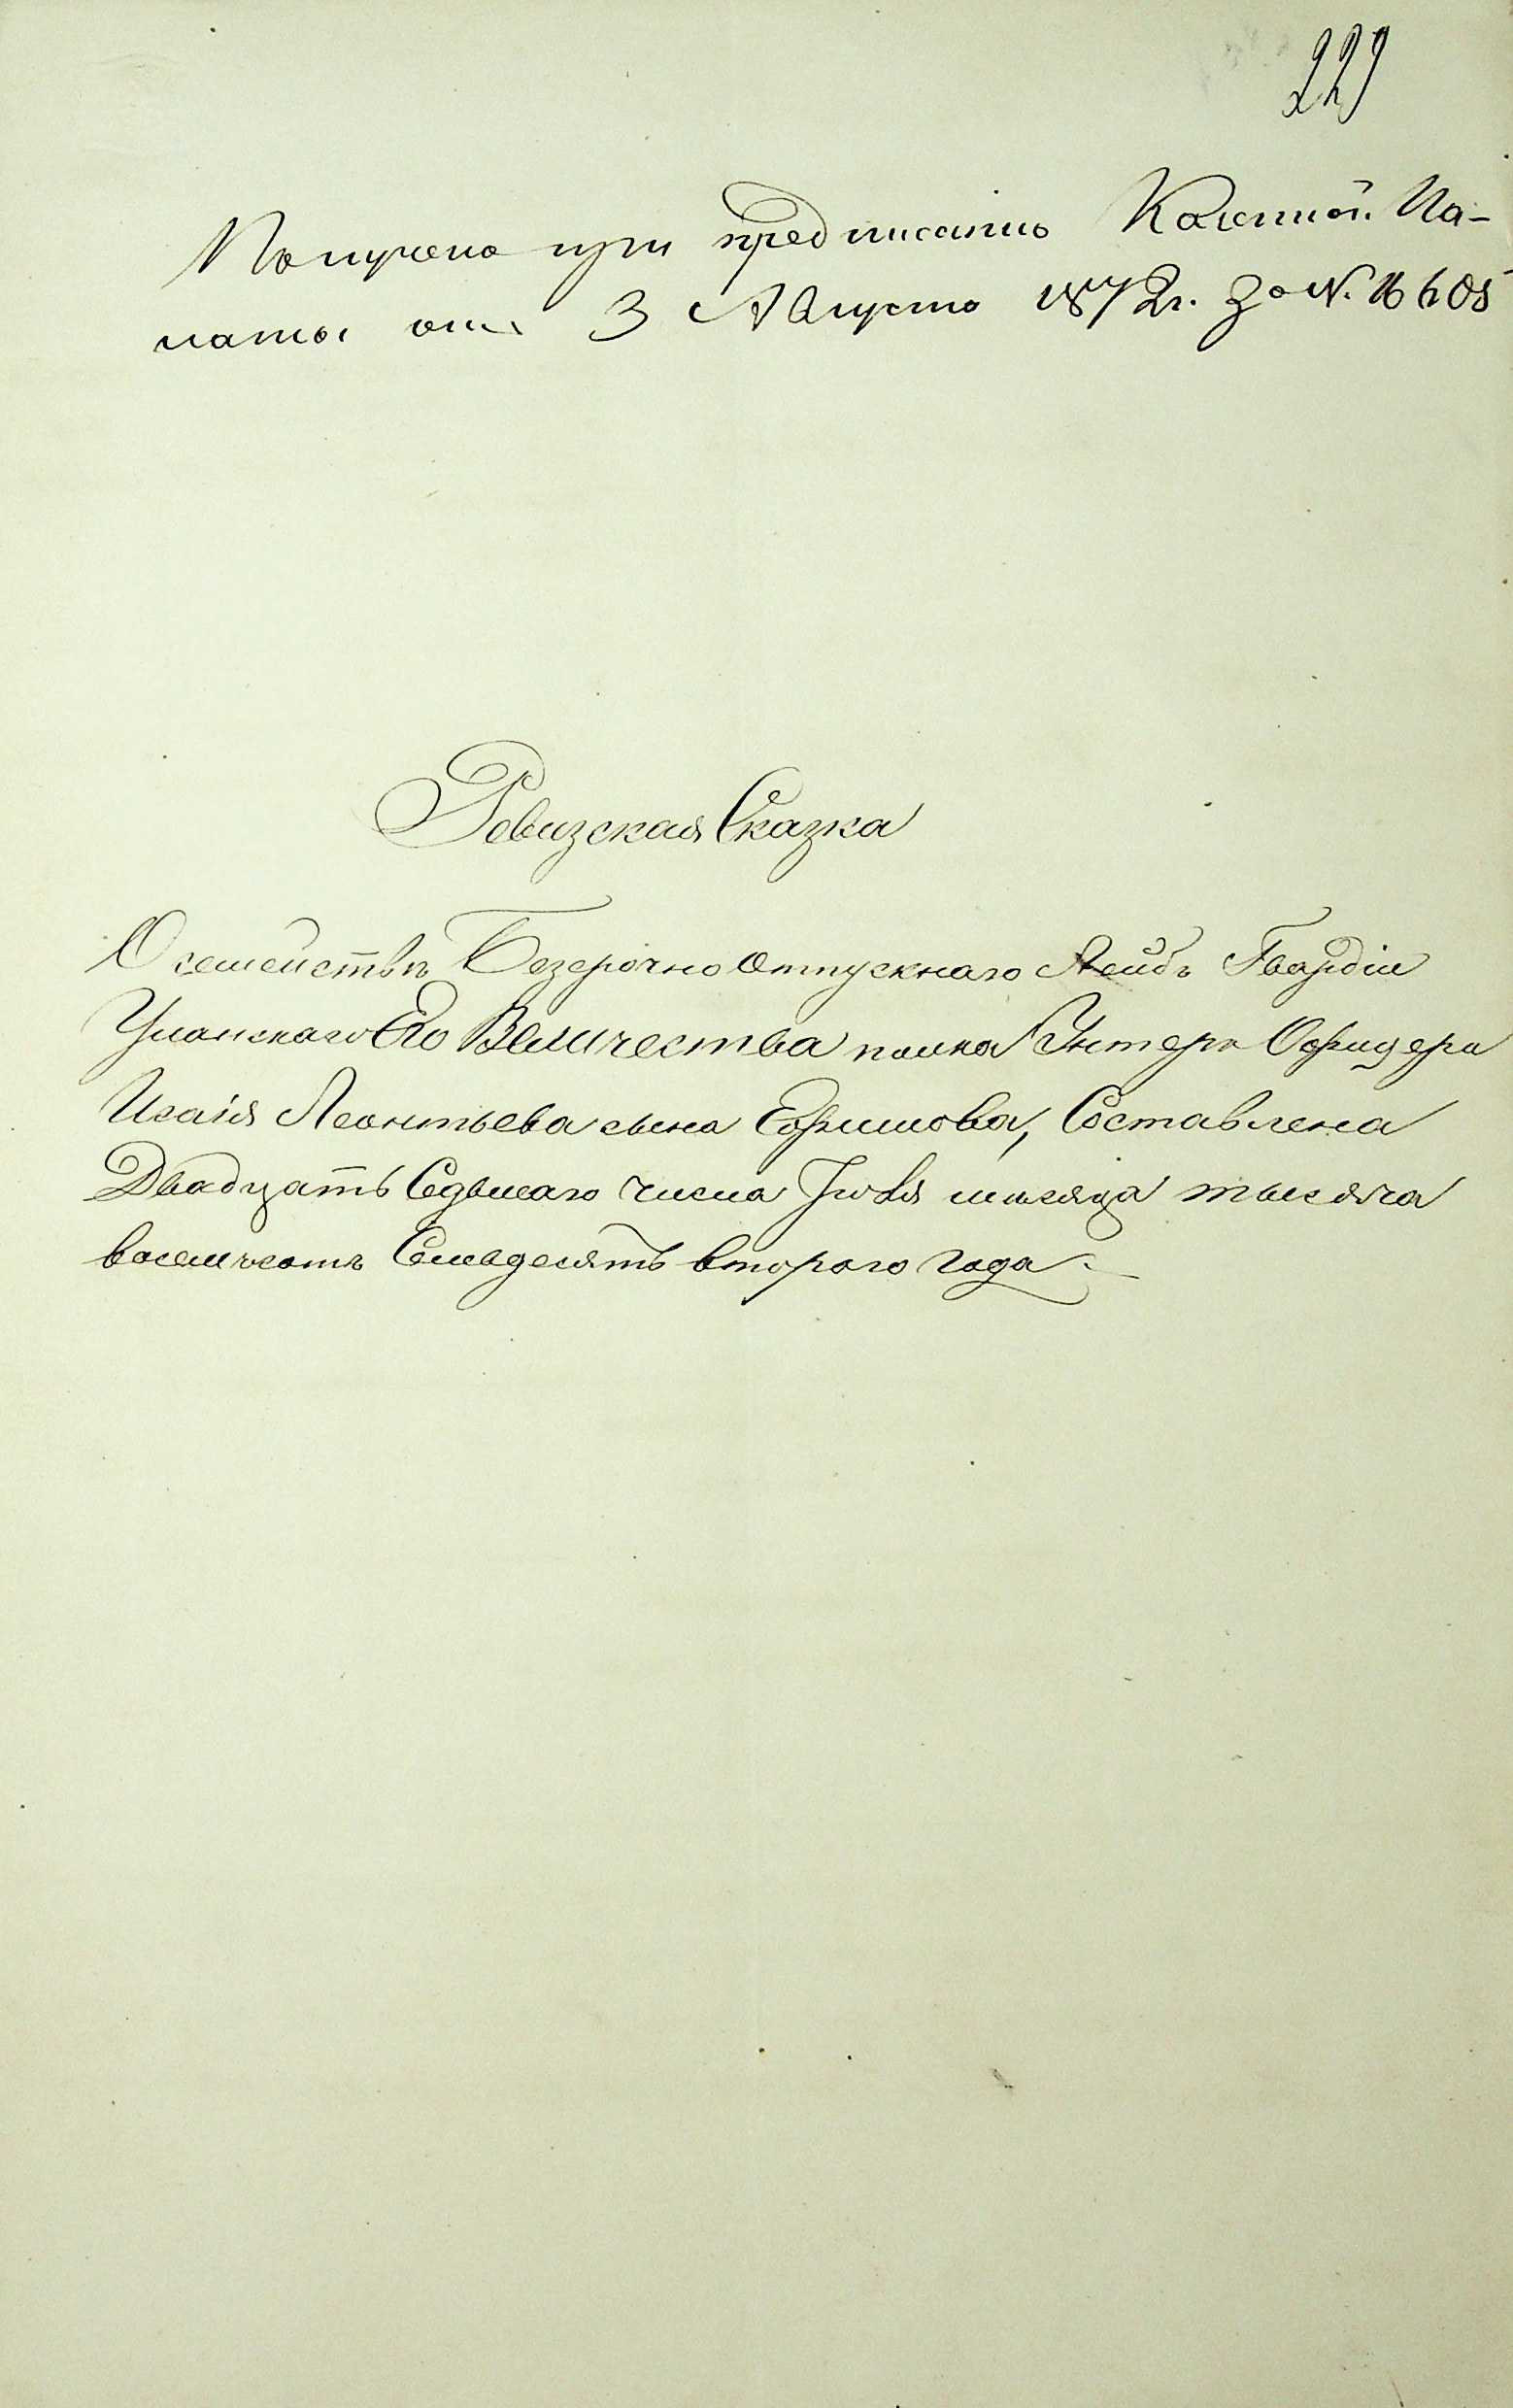 229
Получено при предписанiю Казенной Па-
латы отъ 3 Августа 1872 г. за N. 16605
Ревизская Сказка
О семействѣ Безсрочно отпускнаго Лейбъ Гвардiи
Уланскаго Его Величества полка Унтеръ Офицера
Исаiя Леонтьева сына Ефимова, Составлена
Двадцать Седьмаго числа Iюля мѣсяца тысяча
восемьсотъ Семьдесятъ втораго года.